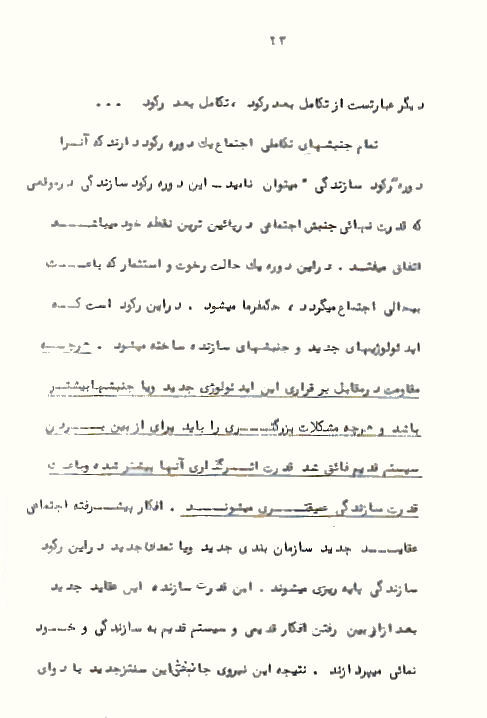 ۲۳
دیگر عبارتست از تکامل بعد رکود ، تکامل بعد رکود ...
تمام جنبشهای تکاملی اجتماع یک دوره رکود دارند که آنرا
دوره "رکود سازندگی" میتوان نامید ــ این دوره رکود سازندگی درموقعی
که قدرت نهائی جنبش اجتماعی درپائین ترین نقطه خود میباشــــد
اتفاق میفتــد . دراین دوره یک حالت رخوت و استثمار که باعـــث
بیحالی اجتماع میگردد ، حکمفرما میشود . دراین رکود است کـــه
اید ئولوژیهای جدید و جنبشهای سازنده ساخته میشود . هرچـــه
مقاومت درمقابل برقراری این اید ئولوژی جدید ویا جنبشهابیشتـر
باشد و هرچه مشکلات بزرگتـــــری را باید برای از بین بـــــردن
سیستم قدیم فائق شد قدرت اثــرگذاری آنها بیشتر شده وباعث
قدرت سازندگی عمیقتـــــری میشونـــد . افکار پیشـــرفته اجتماعی
عقایـــد جدید سازمان بندی جدید ویا تمدن جدید دراین رکود
سازندگی پایه ریزی میشوند . این قدرت سازنده این عقاید جدید
بعد ازازبین رفتن افکار قدیمی و سیستم قدیم به سازندگی و خـــود
نمائی میپردازند . نتیجه این نیروی جانبخش این سنتزجدید با دوای